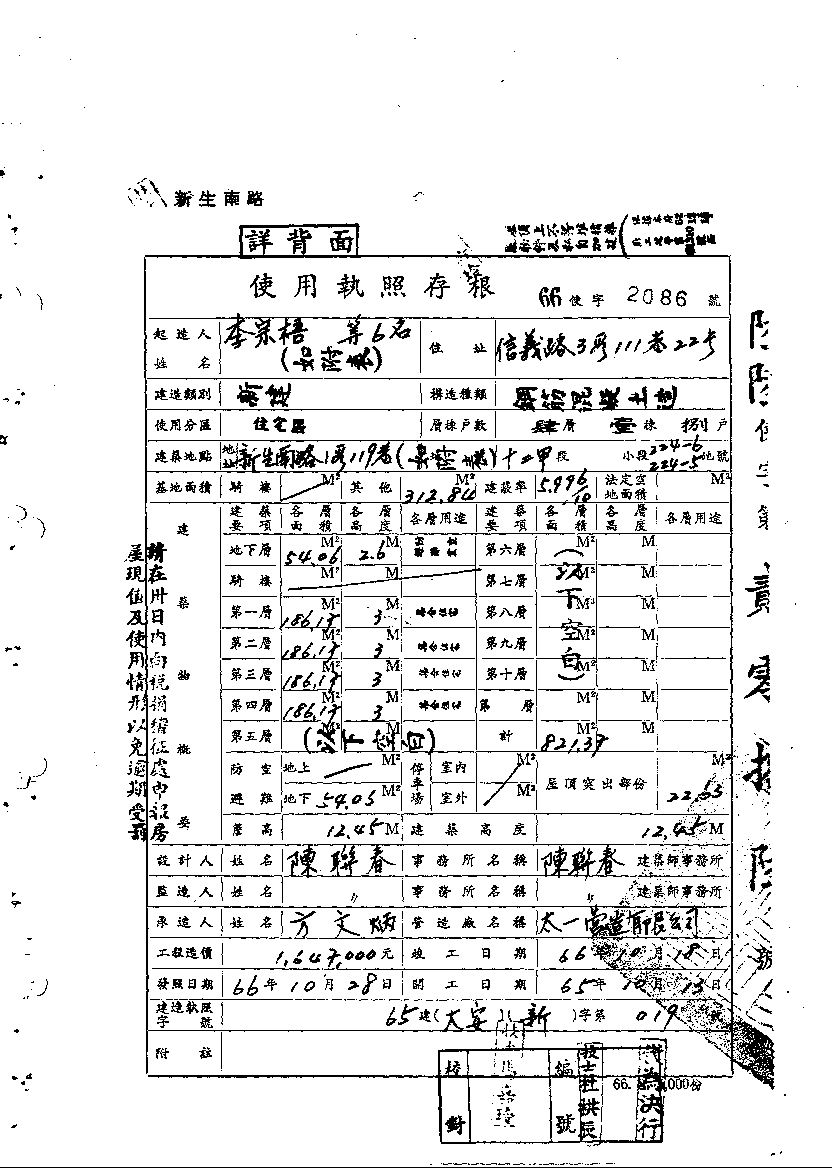 新生南路
詳背面
使用執照存根
66使字2086號
起造人姓名 李宗梧 等6名(如附表) 住址 信義路3段111巷22号
建造類別 新建 構造種類 鋼筋混凝土造
使用分區 住宅區 層棟戶數 肆層 壹棟 捌戶
建築地點 新生南路1段119巷 十二甲段 小段224-6 224-5地號
基地面積 騎樓 M² 其他 312.84 M² 建蔽率 法定空地面積 M²
建築物概要
建築要項 各層面積 各層高度 各層用途 建築要項 各層面積 各層高度 各層用途
地下層 54.06 M² 2.6 M 第六層 M² M
騎樓 M² M 第七層 M² M
第一層 186.17 M² 3 M 第八層 M² M
第二層 186.17 M² 3 M 第九層 M² M
第三層 186.17 M² 3 M 第十層 M² M
第四層 186.17 M² 3 M 第 層 M² M
第五層 (以下空白) 計 821.37 M
(以下空白)
防空避難 地上 M² 地下 54.05 M² 停車場 室內 M² 室外 M² 屋頂突出部份 M²
簷高 12.45 M 建築高度 12.45 M
設計人 姓名 陳聯春 事務所名稱 陳聯春 建築師事務所
監造人 姓名 〃 事務所名稱 〃 建築師事務所
承造人 姓名 方文炳 營造廠名稱 太一營造有限公司
工程造價 1,647,000元 竣工日期 66年10月18日
發照日期 66年10月28日 開工日期 65年10月13日
建造執照字號 65建(大安)(新)字第019號
附註
請在卅日內向稅捐稽征處申報房
屋現值及使用情形以免逾期受罰
校對
編號
技士杜拱辰
代為決行